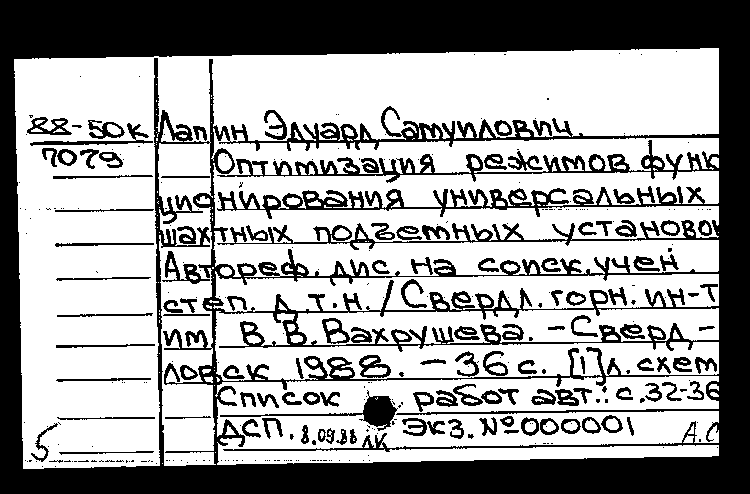 88-50к Лапин, Эдуард Самуилович.
7079 Оптимизация режимов функ
ционирования универсальных
шахтных подъемных установок
Автореф. дис. на соиск. учен.
степ. д.т.н. / Свердл. горн. ин-т
им. В.В. Вахрушева. - Сверд,-
ловск, 1988. - 36 с., [1] л. схем
Список работ авт.: с. 32-36
ДСП. 8.09.88 ЛК Экз. №000001 А.С
5